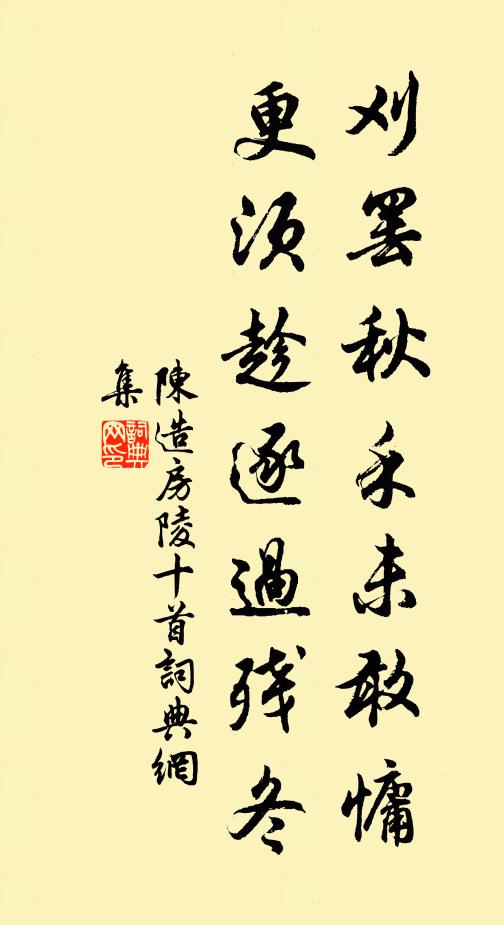 刈罢秋禾未敢慵
更须趁逐過残冬
陳造房陵十首詞典網
集
詞典网印